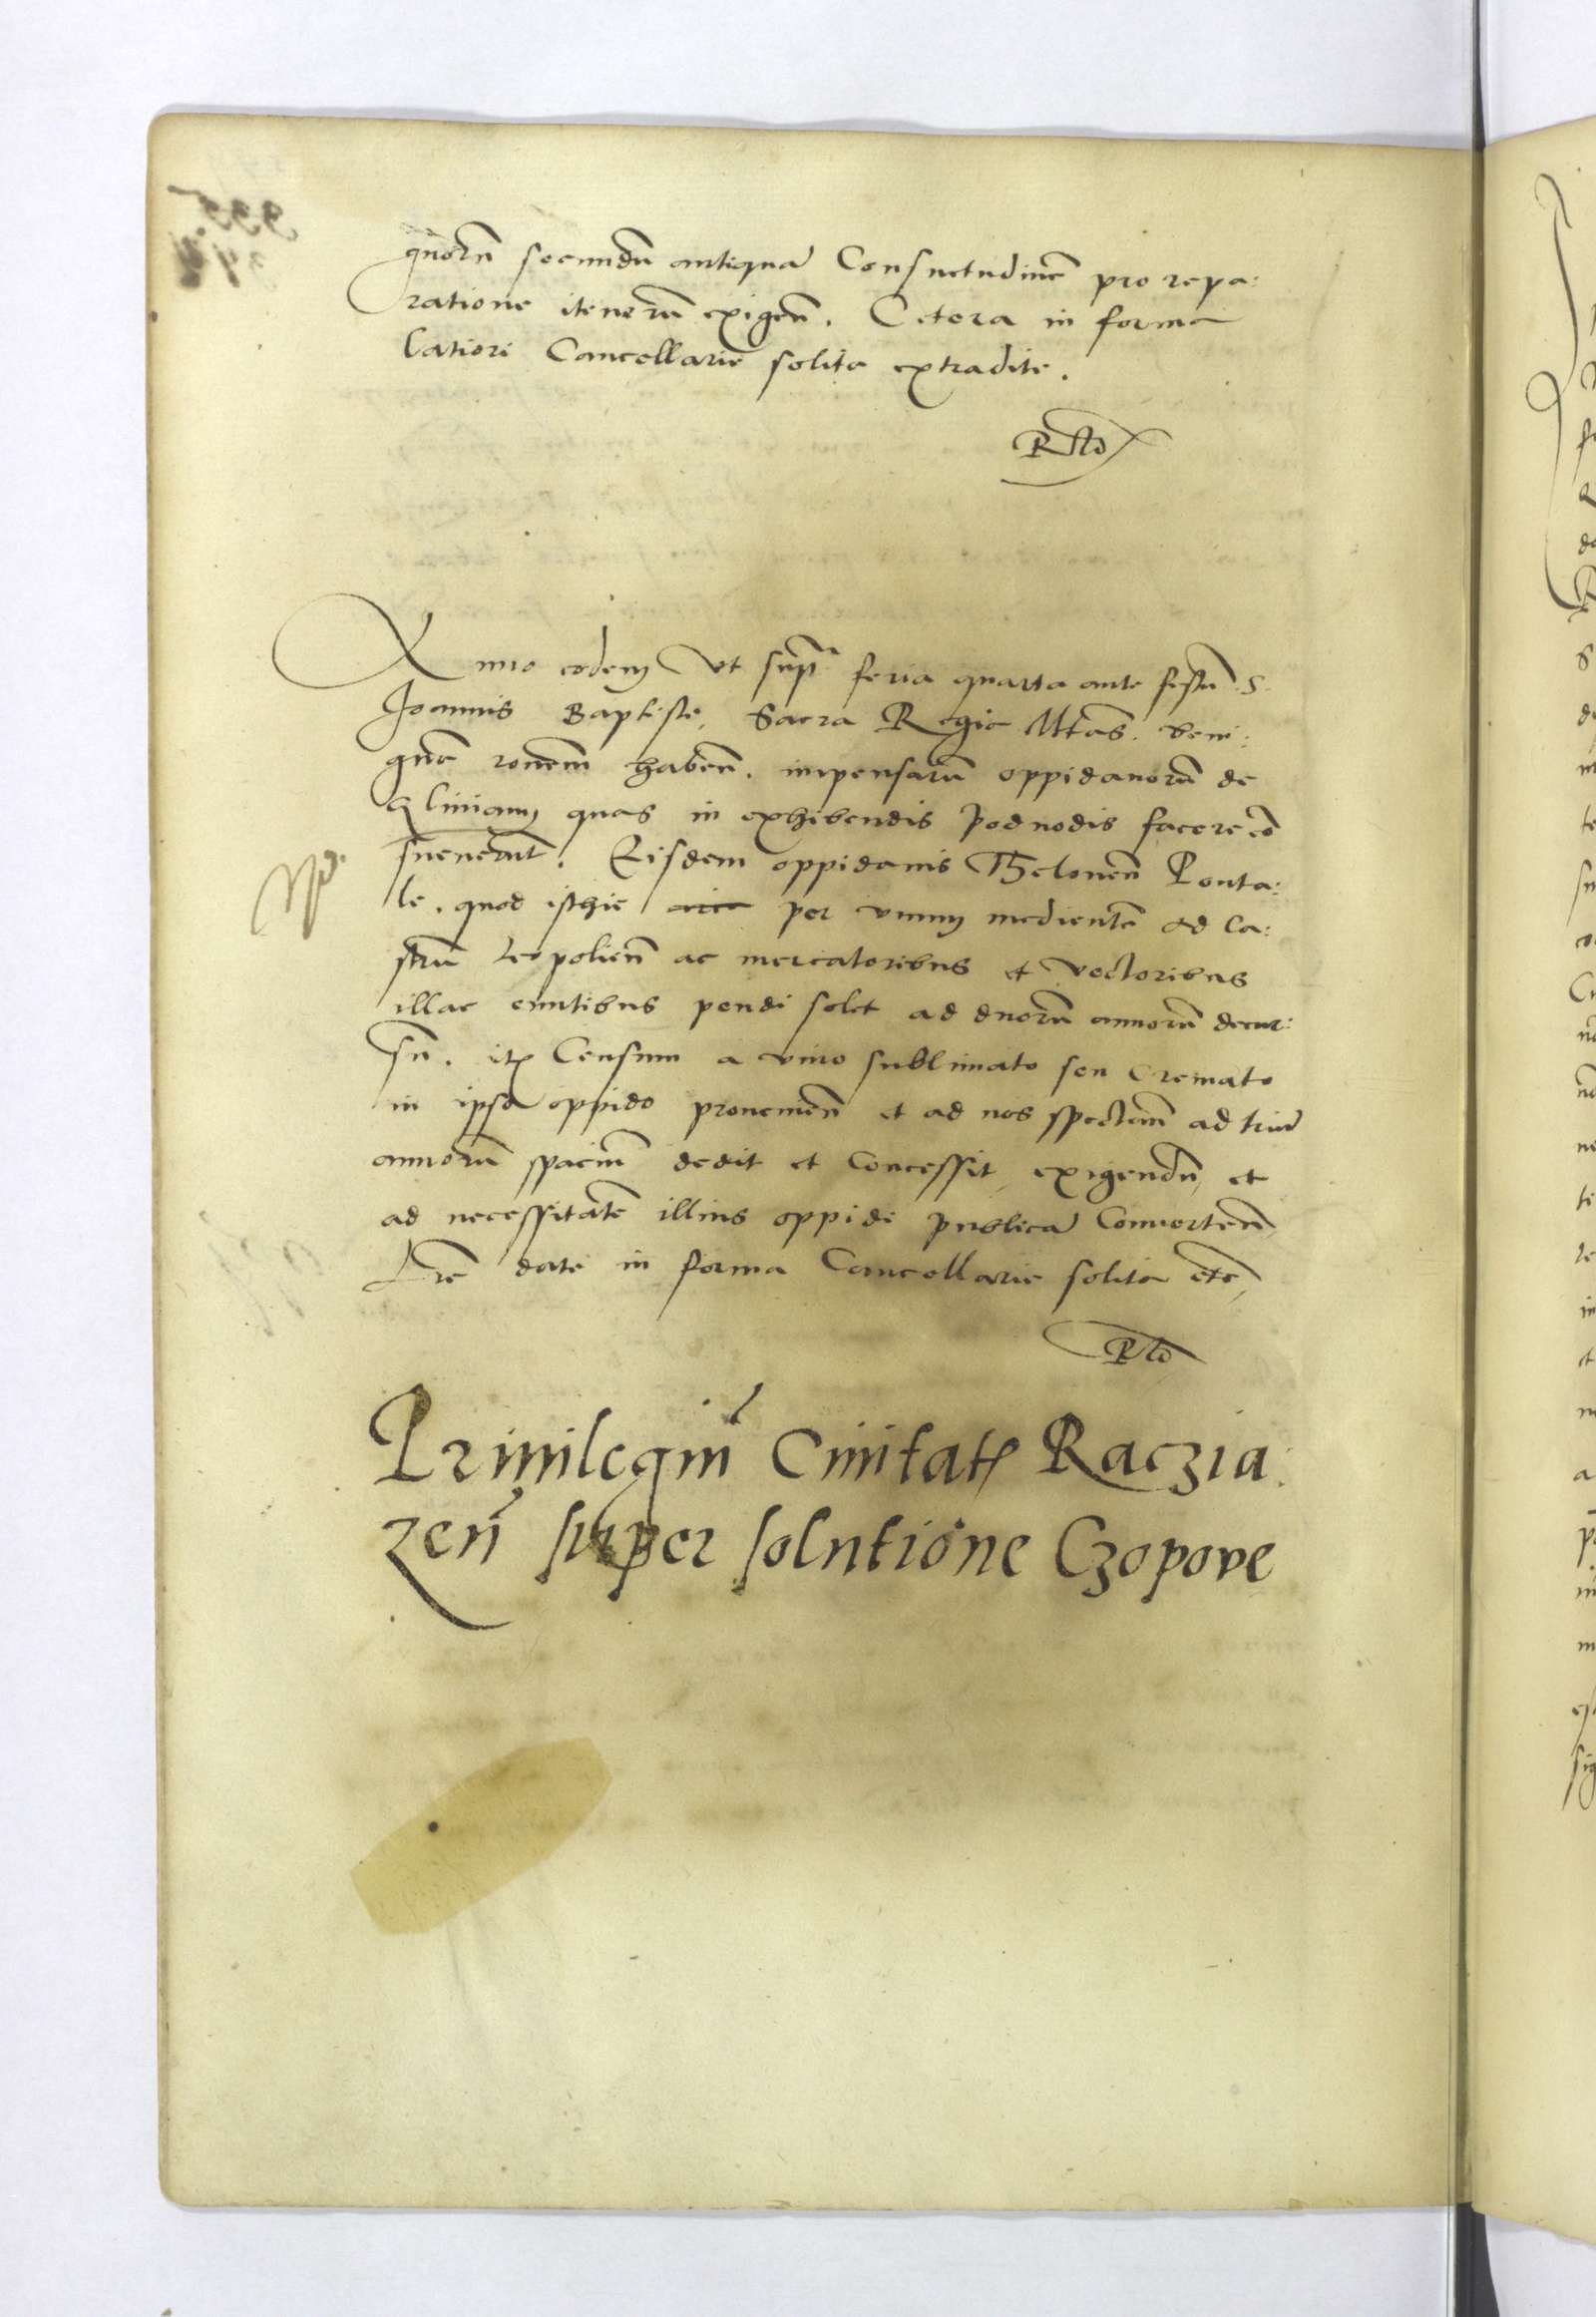 quorū secundū antiquā Consuetudinē pro repa:
ratione itenerū exigeñ. Cetera in forma
latiori Cancellarie solita extradite.
Anno eodem vt supra feria quarta ante festū S.
Joannis Baptiste, Sacra Regia Mtas. beni:
gnā ronem habeñ. impensarū oppidanorū de
Gliniany quas in exhibendis podvodis facere cō
sueuerūt. Eisdem oppidanis Theloneū Ponta:
le, quod isthic per vnum medientē ad ca:
strū Leopolieñ ac mercatoribus et vectoribus
illac euntibus pendi solet ad duorū annorū decur:
sū. itẽ Censum a vino sublimato seu Cremato
in ipso oppido proueniēn et ad nos spectañ ad triū
annorū spaciū dedit et Concessit, exigendū, et
ad necessitatē illius oppidi publicā Conuerteñ,
Lr̄e date in forma Cancellarie solita etc,
Priuilegiū Ciuitatis Raczia:
zeñ super solutione Czopove